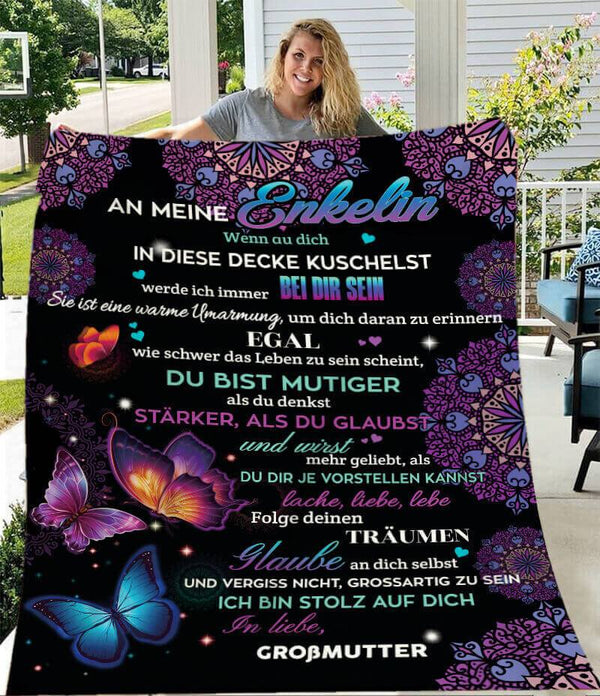 AN MEINE Enkelin
Wenn au dich
IN DIESE DECKE KUSCHELST
werde ich immer BEI DIR SEIN
Sie ist eine warme Umarmung, um dich daran zu erinnern
EGAL
wie schwer das Leben zu sein scheint,
DU BIST MUTIGER
als du denkst
STÄRKER, ALS DU GLAUBST
und wirst
mehr geliebt, als
DU DIR JE VORSTELLEN KANNST
lache, liebe, lebe
Folge deinen
TRÄUMEN
Glaube an dich selbst
UND VERGISS NICHT, GROSSARTIG ZU SEIN
ICH BIN STOLZ AUF DICH
In liebe,
GROßMUTTER